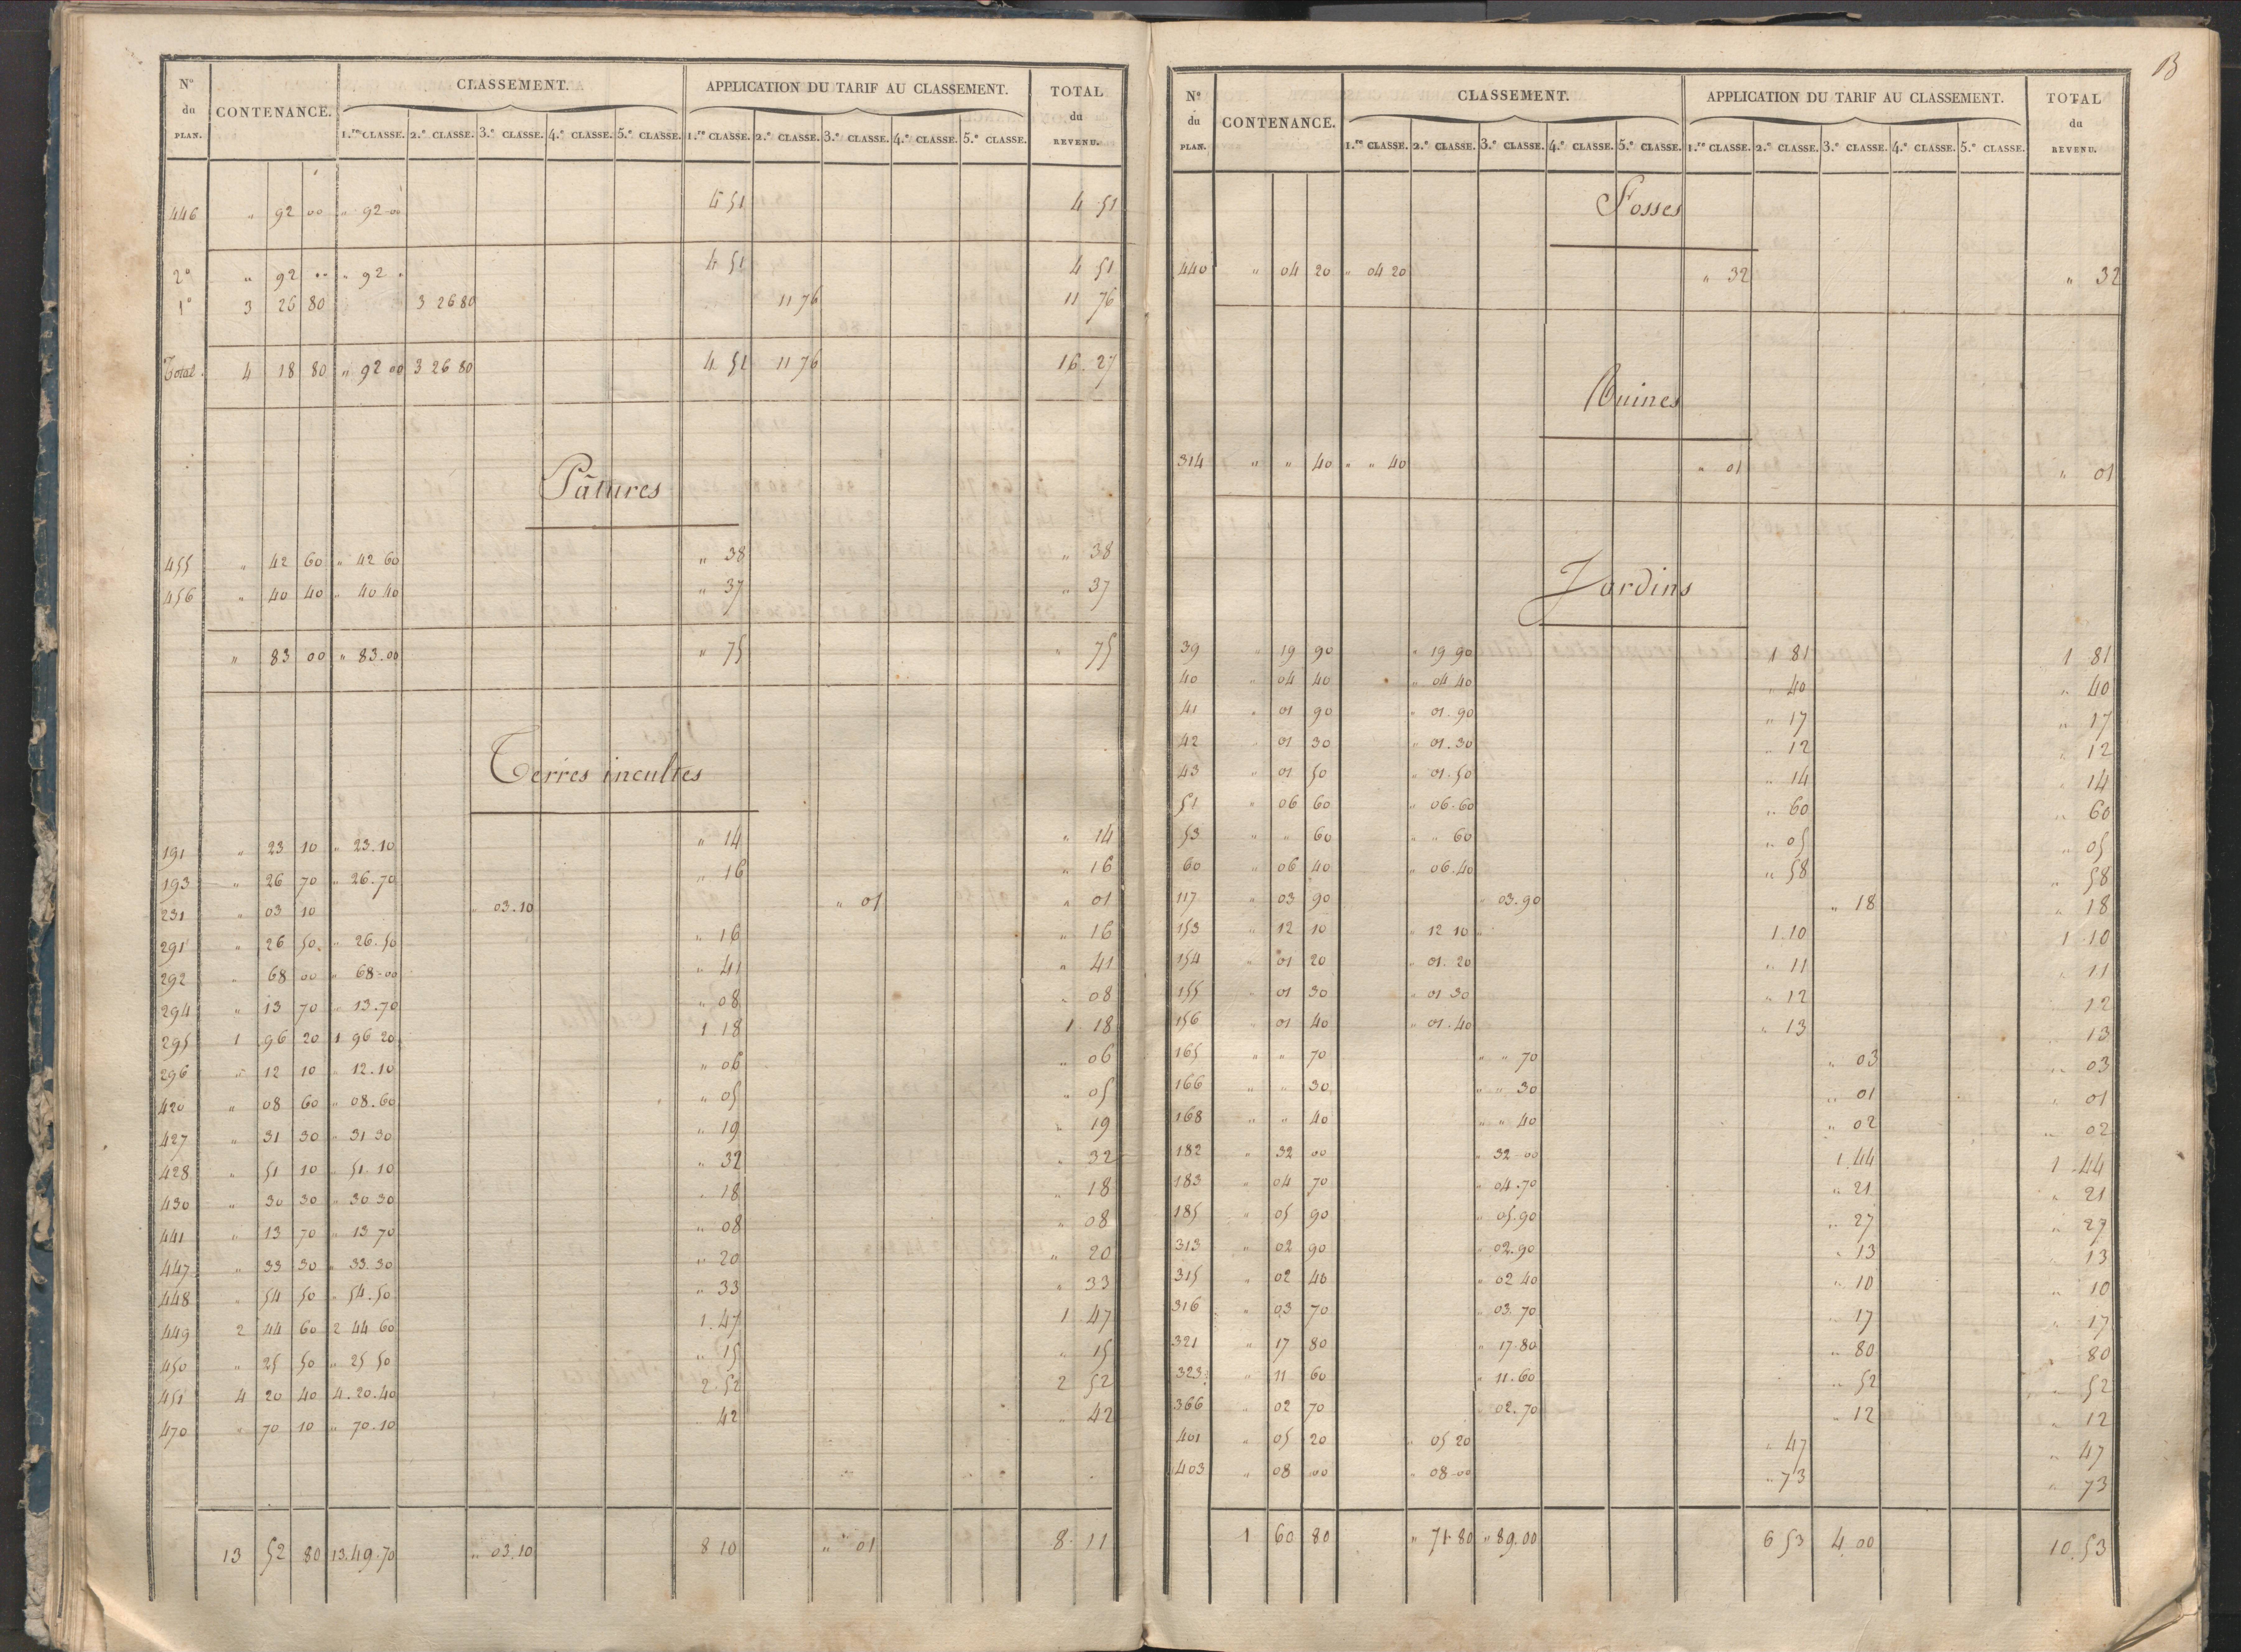 N° du PLAN. CONTENANCE. CLASSEMENT. APPLICATION DU TARIF AU CLASSEMENT. TOTAL du REVENU.
1.re CLASSE. 2.e CLASSE. 3.e CLASSE. 4.e CLASSE. 5.e CLASSE. 1.re CLASSE. 2.e CLASSE. 3.e CLASSE. 4.e CLASSE. 5.e CLASSE.
446 " 92 00 " 92 00 4 51 4 51
2° " 92 " " 92 " 4 51 4 51
1° 3 26 80 3 26 80 11 76 11 76
Total. 4 18 80 " 92 00 3 26 80 4 51 11 76 16.27
Pâtures
455 " 42 60 " 42 60 " 38 " 38
456 " 40 40 " 40 40 " 37 " 37
" 83 00 " 83.00 " 75 " 75
Terres incultes
191 " 23 10 " 23.10 " 14 " 14
193 " 26 70 " 26.70 " 16 " 16
231 " 03 10 " 03.10 " 01 " 01
291 " 26 50 " 26.50 " 16 " 16
292 " 68 00 " 68-00 " 41 " 41
294 " 13 70 " 13.70 " 08 " 08
295 1 96 20 1 96 20 1 18 1 18
296 " 12 10 " 12.10 " 06 " 06
420 " 08 60 " 08.60 " 05 " 05
427 " 31 30 " 31 30 " 19 " 19
428 " 51 10 " 51.10 " 32 " 32
430 " 30 30 " 30 30 " 18 " 18
441 " 13 70 " 13 70 " 08 " 08
447 " 33 30 " 33.30 " 20 " 20
448 " 54 50 " 54.50 " 33 " 33
449 2 44 60 2 44 60 1.47 1 47
450 " 25 50 " 25 50 " 15 " 15
451 4 20 40 4.20.40 2.52 2 52
470 " 70 10 " 70.10 " 42 " 42
13 52 80 13.49.70 " 03.10 8 10 " 01 8.11
13
N° du PLAN. CONTENANCE. CLASSEMENT. APPLICATION DU TARIF AU CLASSEMENT. TOTAL du REVENU.
1.re CLASSE. 2.e CLASSE. 3.e CLASSE. 4.e CLASSE. 5.e CLASSE. 1.re CLASSE. 2.e CLASSE. 3.e CLASSE. 4.e CLASSE. 5.e CLASSE.
Fosses
440 " 04 20 " 04 20 " 32 " 32
Ruines
314 " " 40 " " 40 " 01 " 01
Jardins
39 " 19 90 " 19 90 1 81 1 81
40 " 04 40 " 04 40 " 40 " 40
41 " 01 90 " 01.90 " 17 " 17
42 " 01 30 " 01.30 " 12 " 12
43 " 01 50 " 01.50 " 14 " 14
51 " 06 60 " 06.60 " 60 " 60
53 " " 60 " " 60 " 05 " 05
60 " 06 40 " 06.40 " 58 " 58
117 " 03 90 " 03.90 " 18 " 18
153 " 12 10 " 12 10 1.10 1 10
154 " 01 20 " 01.20 " 11 " 11
155 " 01 30 " 01 30 " 12 " 12
156 " 01 40 " 01.40 " 13 " 13
165 " " 70 " " 70 " 03 " 03
166 " " 30 " " 30 " 01 " 01
168 " " 40 " " 40 " 02 " 02
182 " 32 00 " 32-00 1.44 1.44
183 " 04 70 " 04.70 " 21 " 21
185 " 05 90 " 05.90 " 27 " 27
313 " 02 90 " 02.90 " 13 " 13
315 " 02 40 " 02 40 " 10 " 10
316 " 03 70 " 03.70 " 17 " 17
321 " 17 80 " 17.80 " 80 " 80
323 " 11 60 " 11.60 " 52 " 52
366 " 02 70 " 02.70 " 12 " 12
401 " 05 20 " 05 20 " 47 " 47
403 " 08 00 " 08-00 " 73 " 73
1 60 80 " 71.80 " 89.00 6 53 4 00 10.53